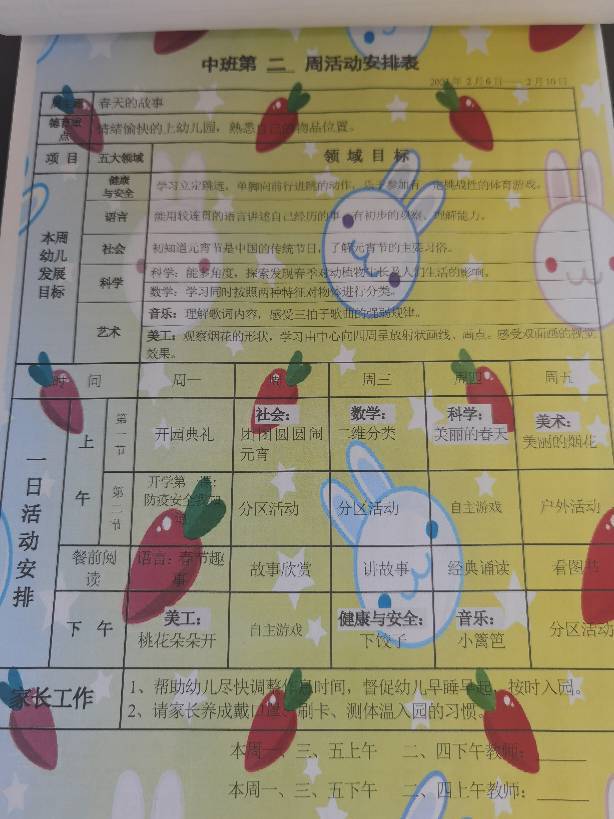 中班第 二 周活动安排表
年 2月6日——2月10日
春天的故事
情绪愉快的上幼儿园，熟悉自己的物品位置。
项 目 五大领域 领 域 目 标
本周幼儿发展目标
健康与安全 学习立定跳远、单脚向前行进跳的动作，
挑战性的体育游戏。
语言 能用较连贯的语言讲述自己经历的事，有初步的观察、理解能力。
社会 初知道元宵节是中国的传统节日，了解元宵节的主要习俗。
科学 科学：能多角度，探索发现春季对动植物生长及人们生活的影响。
数学：学习同时按照两种特征对物体进行分类。
艺术 音乐：理解歌词内容，感受三拍子歌曲的强弱规律。
美工：观察烟花的形状，学习由中心向四周呈放射状画线、画点。感受双面画的视觉
效果。
时 间 周一 周 周三 周四 周五
一日活动安排
上午
第一节 开园典礼 社会：团团圆圆闹元宵 数学：二维分类 科学：美丽的春天 美术：美丽的烟花
第二节 开学第 课：防疫安全 分区活动 分区活动 自主游戏 户外活动
餐前阅读 语言：春节趣事 故事欣赏 讲故事 经典诵读 看图书
下 午 美工：桃花朵朵开 自主游戏 健康与安全：下饺子 音乐：小篱笆 分区活动
家长工作 1、帮助幼儿尽快调整作息时间，督促幼儿早睡早起，按时入园。
2、请家长养成戴口罩、刷卡、测体温入园的习惯。
本周一、三、五上午 二、四下午教师：
本周一、三、五下午 二、四上午教师：